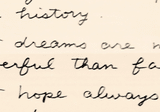 history.
dreams are
erful than fa
hope always